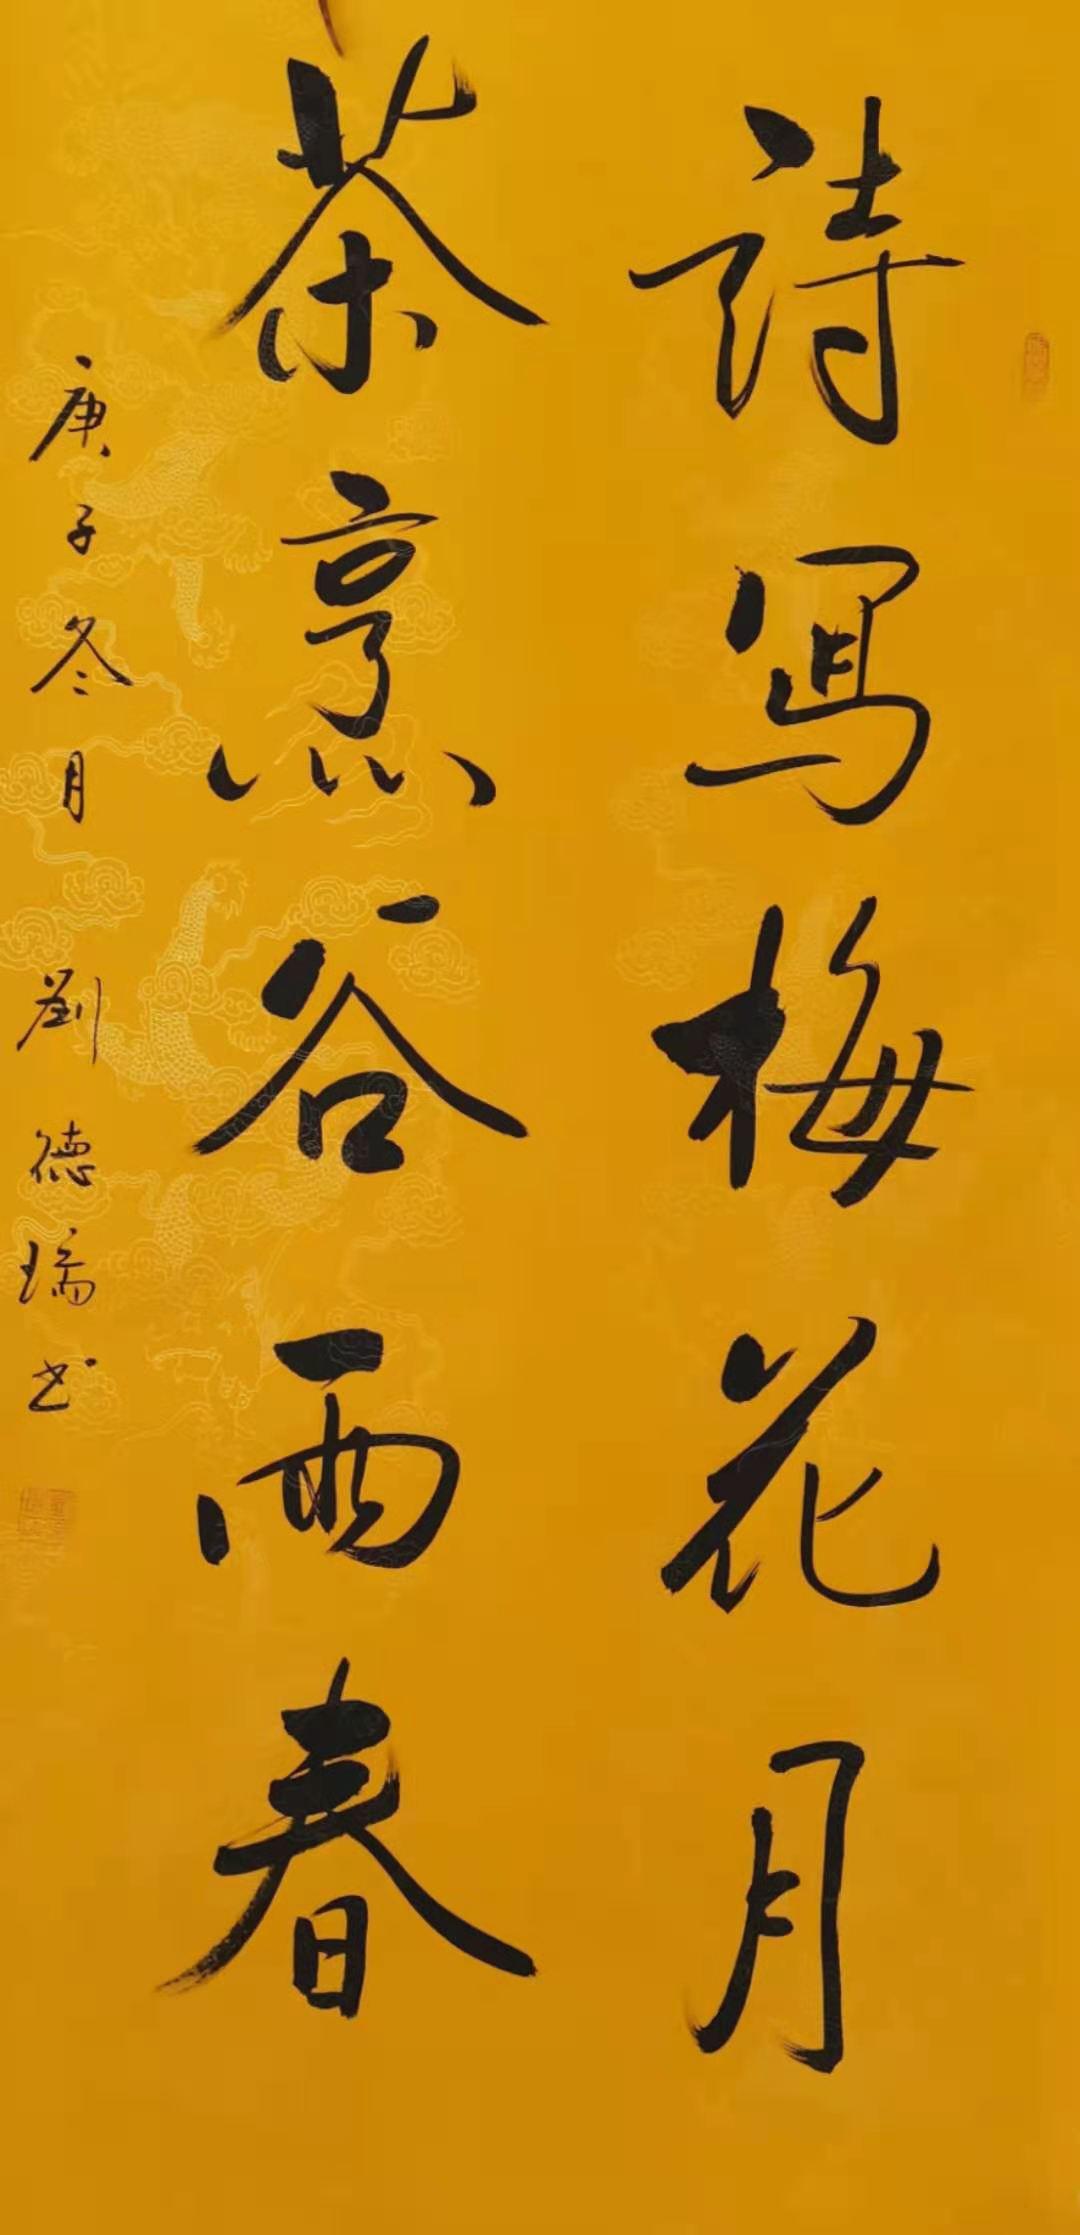 詩写梅花月
茶烹谷雨春
庚子冬月 劉德瑞书